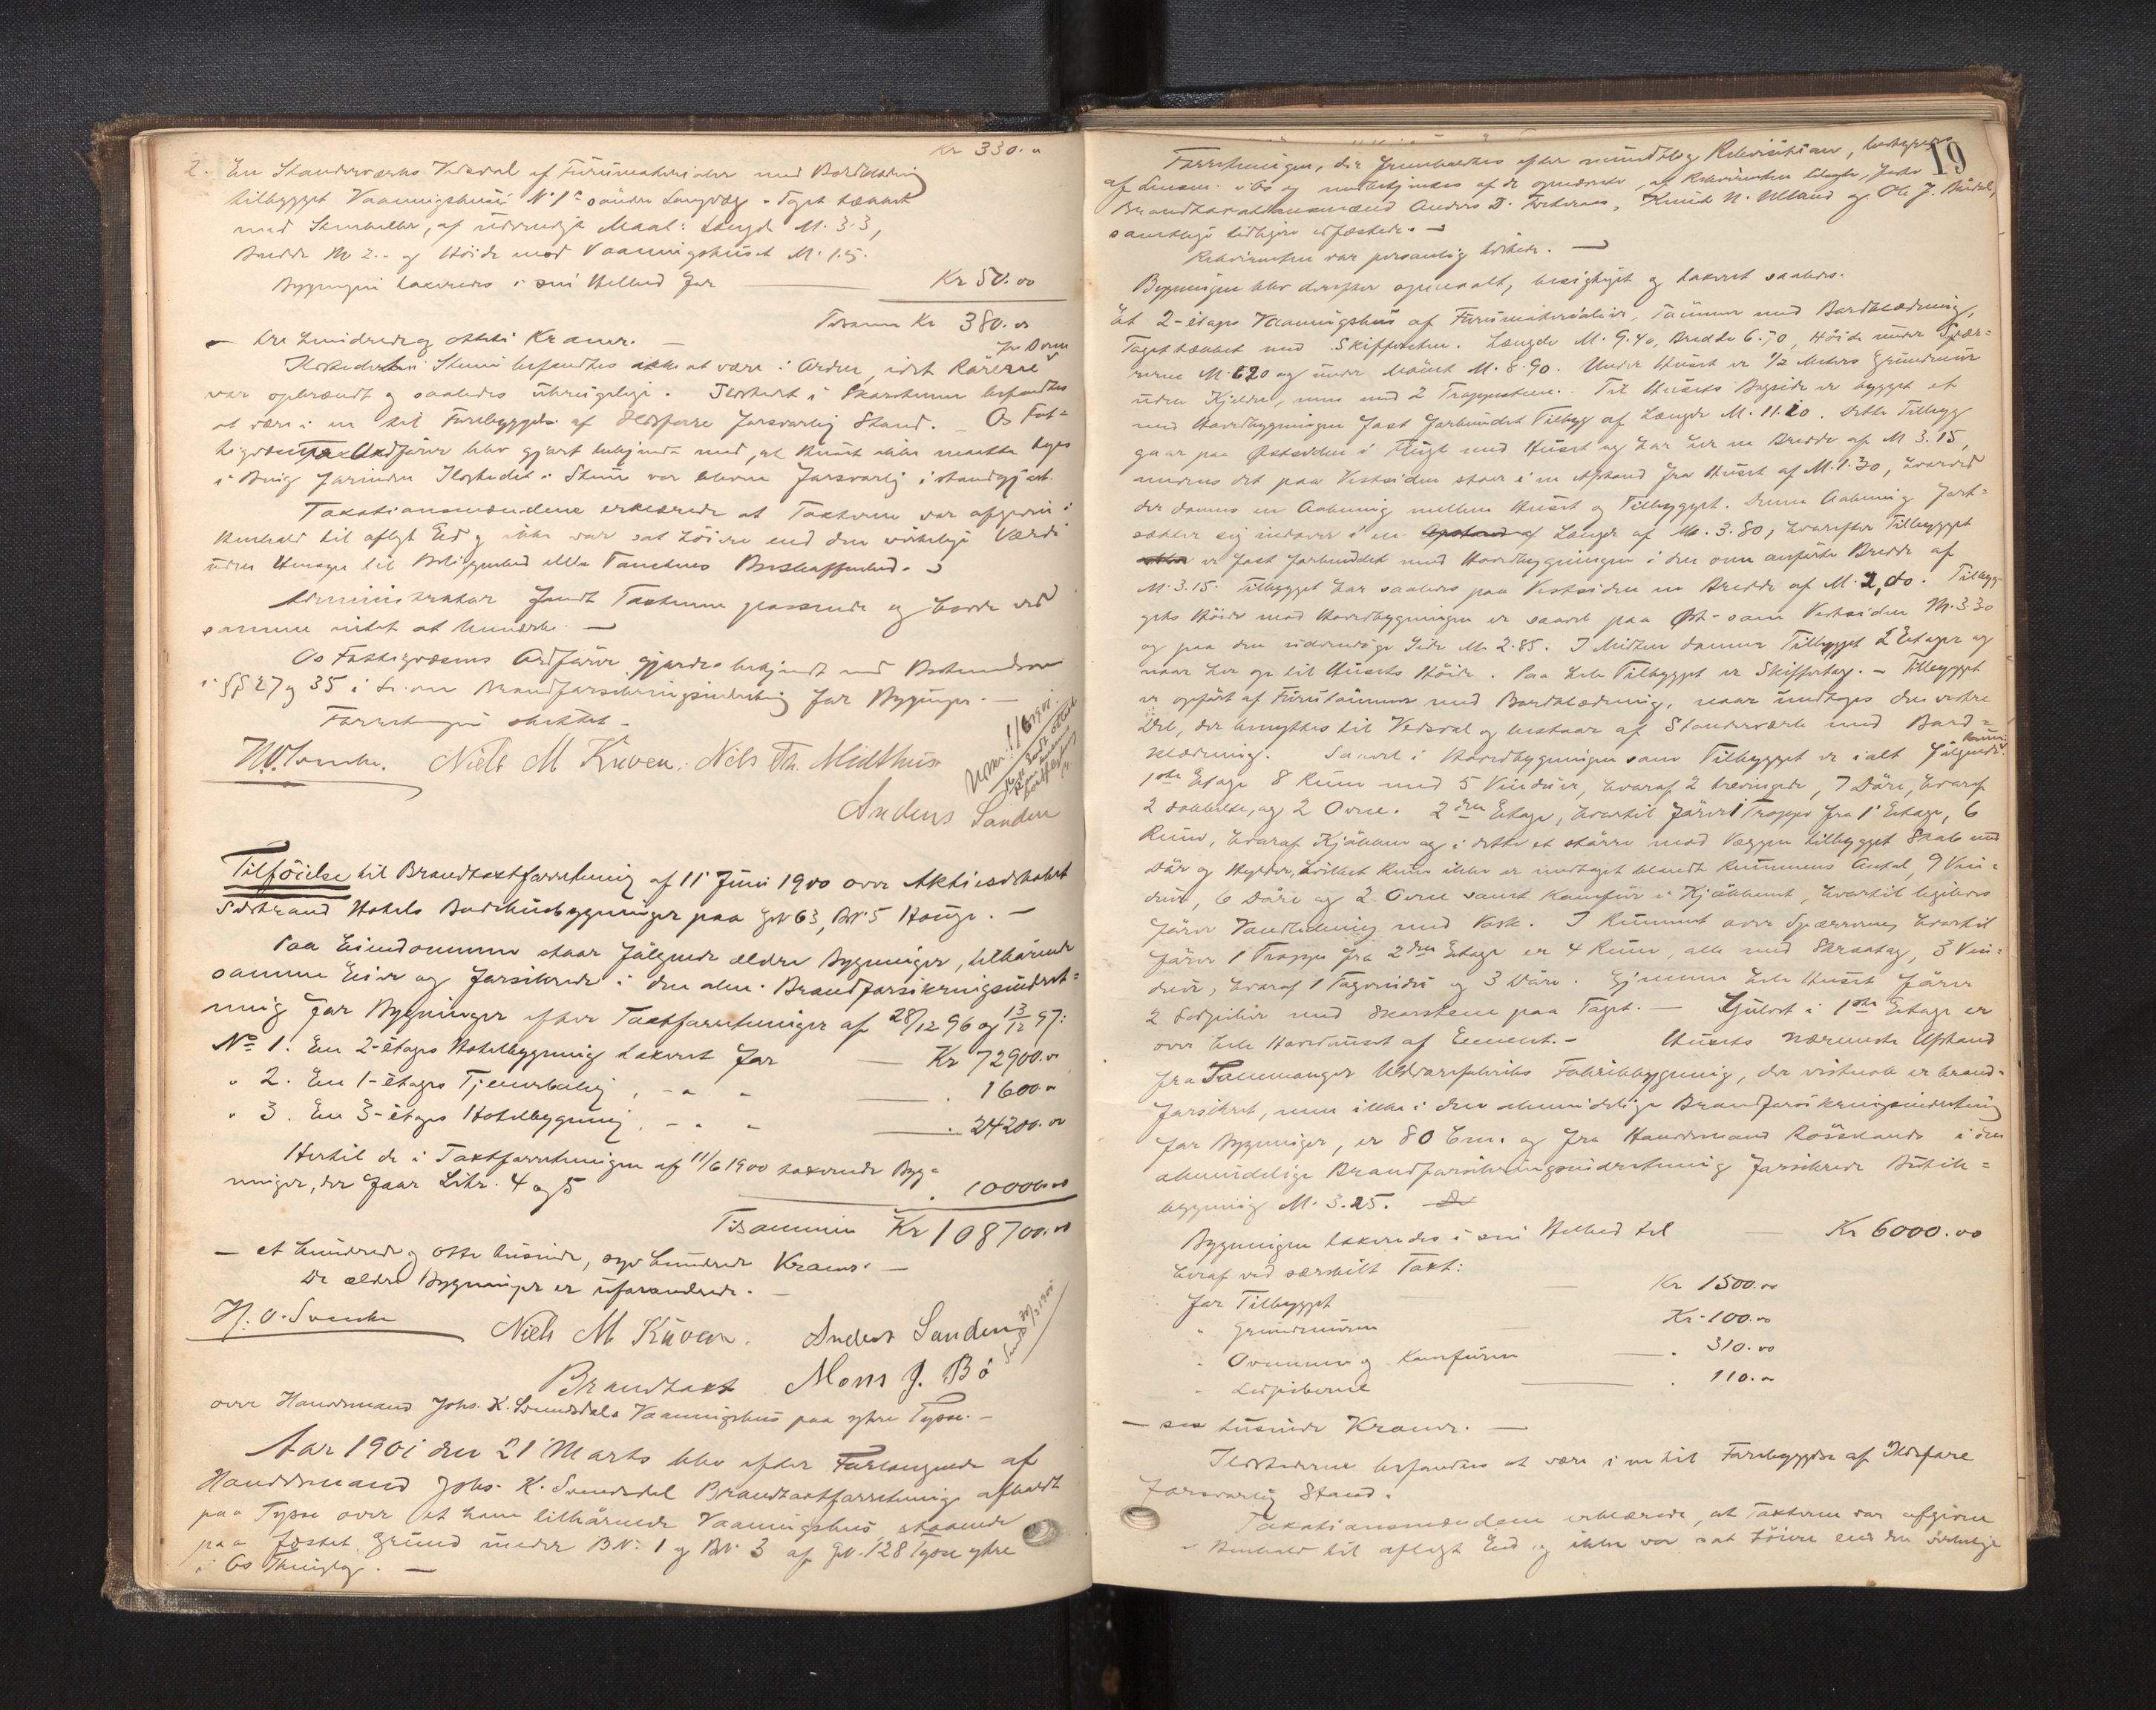 Kr 330.00
2. En Standerværks Vedsval af Furumaterialer med Bordklædning
tilbygget Vaaningshuset No 1 søndre Langvæg. Taget tækket
med Stenheller, af udvendige Maal: Længde M. 3.3,
Bredde M 2.- og Høide mod Vaaningshuset M. 1.5.
Bygningen taxeredes i sin Helhed for Kr 50.00
Tilsammen Kr 380.00
— tre hundrede og otteti Kroner. —
Ildstedet i Stuen befandtes ikke at være i Orden, idet Rørene
var opbrændt og saaledes ubrugelige. Ildstedet i Skorstenen befandtes
at være i en til Forebyggelse af Ildsfare forsvarlig Stand. — Os Fat-
tigvæsens Ordfører blev gjort bekjendt med, at Huset ikke maatte tages
i Brug forinden Ildstedet i Stuen var bleven forsvarlig istandgjort.
Taxationsmændene erklærede at Taxterne var afgivne i
Henhold til aflagt Ed og ikke var sat høiere end den virkelige Værdi
uden Hensyn til Beliggenhed eller Tomtens Beskaffenhed.
Administrator fandt Taxterne passende og havde ved
samme intet at bemærke. —
Os Fattigvæsens Ordfører gjordes bekjendt med Bestemmelserne
i §§ 27 og 35 i Lov om Brandforsikringsindretning for Bygninger. —
Forretningen sluttet. —
Niels M Kuven. Nils Th. Midthus
Anders Sanden
Tilføielse til Brandtaxtforretning af 11 Juni 1900 over Aktieselskabet
Solstrand Hotels Badehusbygninger paa GNo 63, BNo 5 Hauge. —
Paa Eiendommen staar følgende ældre Bygninger, tilhørende
samme Eier og forsikrede i den alm. Brandforsikringsindret-
ning for Bygninger efter Taxtforretninger af 28/12 96 og 13/12 97:
No 1. En 2-etages Hotelbygning taxeret for — Kr 72900.00
" 2. En 1-etages Tjenerbolig, - " - — 1600.00
" 3. En 3-etages Hotelbygning, - " - — 24200.00
Hertil de i Taxtforretningen af 11/6 1900 taxerede Byg-
ninger, der faar Litr. 4 og 5 10000.00
Tilsammen Kr 108700.00
— et hundrede og otte tusinde, syv hundrede Kroner. —
De ældre Bygninger er uforandrede. —
Niels M Kuven. Anders Sanden
Mons J. Bø
Brandtaxt
over Handelsmand Johs. K. Svendsdals Vaaningshus paa ytre Tysse. —
Aar 1901 den 21 Marts blev efter Forlangende af
Handelsmand Johs. K. Svendsdal Brandtaxtforretning afholdt
paa Tysse over et ham tilhørende Vaaningshus, staaende
paa fæstet Grund under BNo. 1 og BNo. 3 af GNo. 128 Tysse ytre
i Os Thinglag. —
19
Forretningen, der foretoges efter mundtlig Rekvisition, bestyredes
af Lensm. i Os og medbetjentes af de opnævnte, af Rekvirenten tilsagte, faste
Brandtaxationsmænd Anders D. , Knud N. Ulland og Ole J. ,
samtlige tidligere edfæstede. —
Rekvirenten var personlig tilstede. —
Bygningen blev derefter opmaalt, besigtiget og taxeret saaledes.
Et 2-etages Vaaningshus af Furumaterialier, Tømmer med Bordklædning,
Taget tækket med Skiffersten. Længde M. 9.40, Bredde 6.70, Høide under Spær-
rerne M. 6.20 og under Mønet M. 8.90. Under Huset er 1/2 Meters Grundmur
uden Kjelder, men med 2 Trappestene. Til Husets Bagside er bygget et
med Hovedbygningen fast forbundet Tilbyg af Længde M. 11.20. Dette Tilbyg
gaar paa Østsiden i Flugt med Huset og har her en Bredde af M 3.15,
medens det paa Vestsiden staar i en Afstand fra Huset af M. 1.30, hvorved
der dannes en Aabning mellem Huset og Tilbygget. Denne Aabning fort-
sætter sig indover i en Længde af M. 3.80, hvorefter Tilbygget
er fast forbundet med Hovedbygningen i den oven anførte Bredde af
M. 3.15. Tilbygget har saaledes paa Vestsiden en Bredde af M. 2,00. Tilbyg-
gets Høide mod Hovedbygningen er saavel paa Øst- som Vestsiden M. 3.30
og paa den udvendige Side M. 2.85. I Midten danner Tilbygget 2 Etager og
naar her op til Husets Høide. Paa hele Tilbygget er Skiffertag. — Tilbygget
er opført af Furutømmer med Bordklædning, naar undtages den vestre
Del, der benyttes til Vedsval og bestaar af Standerværk med Bord-
klædning. Saavel i Hovedbygningen som Tilbygget er ialt følgende Rum:
1ste Etage 8 Rum med 5 Vinduer, hvoraf 2 trevingede, 7 Døre, hvoraf
2 dobbelte, og 2 Ovne. 2den Etage, hvortil fører 1 Trappe fra 1 Etage, 6
Rum, hvoraf Kjøkken og i dette et større mod Væggen tilbygget Skab med
Dør og Hylder, hvilket Rum ikke er medtaget blandt Rummenes Antal, 9 Vin-
duer, 6 Døre og 2 Ovne samt Komfur i Kjøkkenet, hvortil ligeledes
fører Vandledning med Vask. I Rummet over Spærrerne, hvortil
fører 1 Trappe fra 2den Etage er 4 Rum, alle med Skraatag, 3 Vin-
duer, hvoraf 1 Tagvindu og 3 Døre. Gjennem hele Huset fører
2 Ledpiber med Skorstene paa Taget. — Gulvet i 1ste Etage er
over hele Hovedhuset af Cement. — Husets nærmeste Afstand
fra Salemanger Uldvarefabriks Fabrikbygning, der vistnok er brand-
forsikret, men ikke i den almindelige Brandforsikringsindretning
for Bygninger, er 80 Ctm. og fra Handelsmand i den
almindelige Brandforsikringsindretning forsikrede Butik-
bygning M. 3.25.
Bygningen taxeredes i sin Helhed til — Kr 6000.00
hvoraf ved særskilt Taxt:
for Tilbygget — Kr 1500.00
" Grundmuren — Kr 100.00
" Ovnene og Komfuren — 310.00
" Ledpiberne — 110.00
— sex tusinde Kroner. —
Ildstederne befandtes at være i en til Forebyggelse af Ildsfare
forsvarlig Stand.
Taxationsmændene erklærede, at Taxterne var afgivne
i Henhold til aflagt Ed og ikke var sat høiere end den virkelige